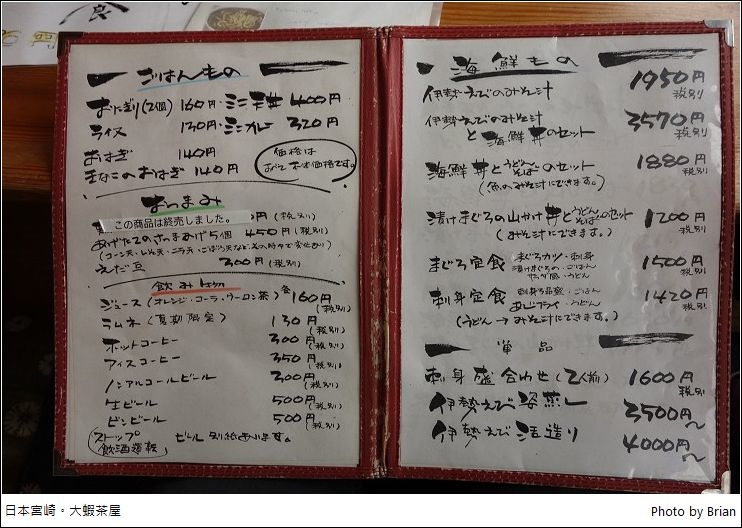 食
ごはんもの
おにぎり(2個) 160円・ミニ天丼 400円
ライス 130円・ミニカレー 320円
おはぎ 140円
きなこのおはぎ 140円
価格は
すべて本体価格です。
おつまみ
この商品は終売しました。 円(税別)
あげたてのさつまあげ5個 450円(税別)
えだ豆 300円(税別)
飲み物
ジュース(オレンジ・コーラ・ウーロン茶)各160円
(税別)
ラムネ(夏期限定) 130円
(税別)
ホットコーヒー 300円
(税別)
アイスコーヒー 350円
(税別)
ノンアルコールビール 300円
(税別)
生ビール 500円
(税別)
ビンビール 500円
(税別)
ストップ
飲酒運転
ビール 別紙あります。
海鮮もの
伊勢えびのみそ汁 1950円
税別
伊勢えびのみそ汁
と海鮮丼のセット 3570円
税別
海鮮丼とうどんorそばのセット 1880円
税別
(魚のみそ汁にできます。)
漬けまぐろの山かけ丼とうどんorそばのセット 1200円
税別
(みそ汁にできます。)
まぐろ定食 まぐろカツ・刺身
漬けまぐろ・ごはん
サラダ・うどん 1500円
税別
刺身定食 ごはん
あじフライ・うどん 1420円
税別
(うどん→みそ汁にできます。)
単品
刺身盛合わせ(2人前) 1600円
税別
伊勢えび姿蒸し 3500円~
伊勢えび活造り 4000円~
日本宮崎。大蝦茶屋
Photo by Brian